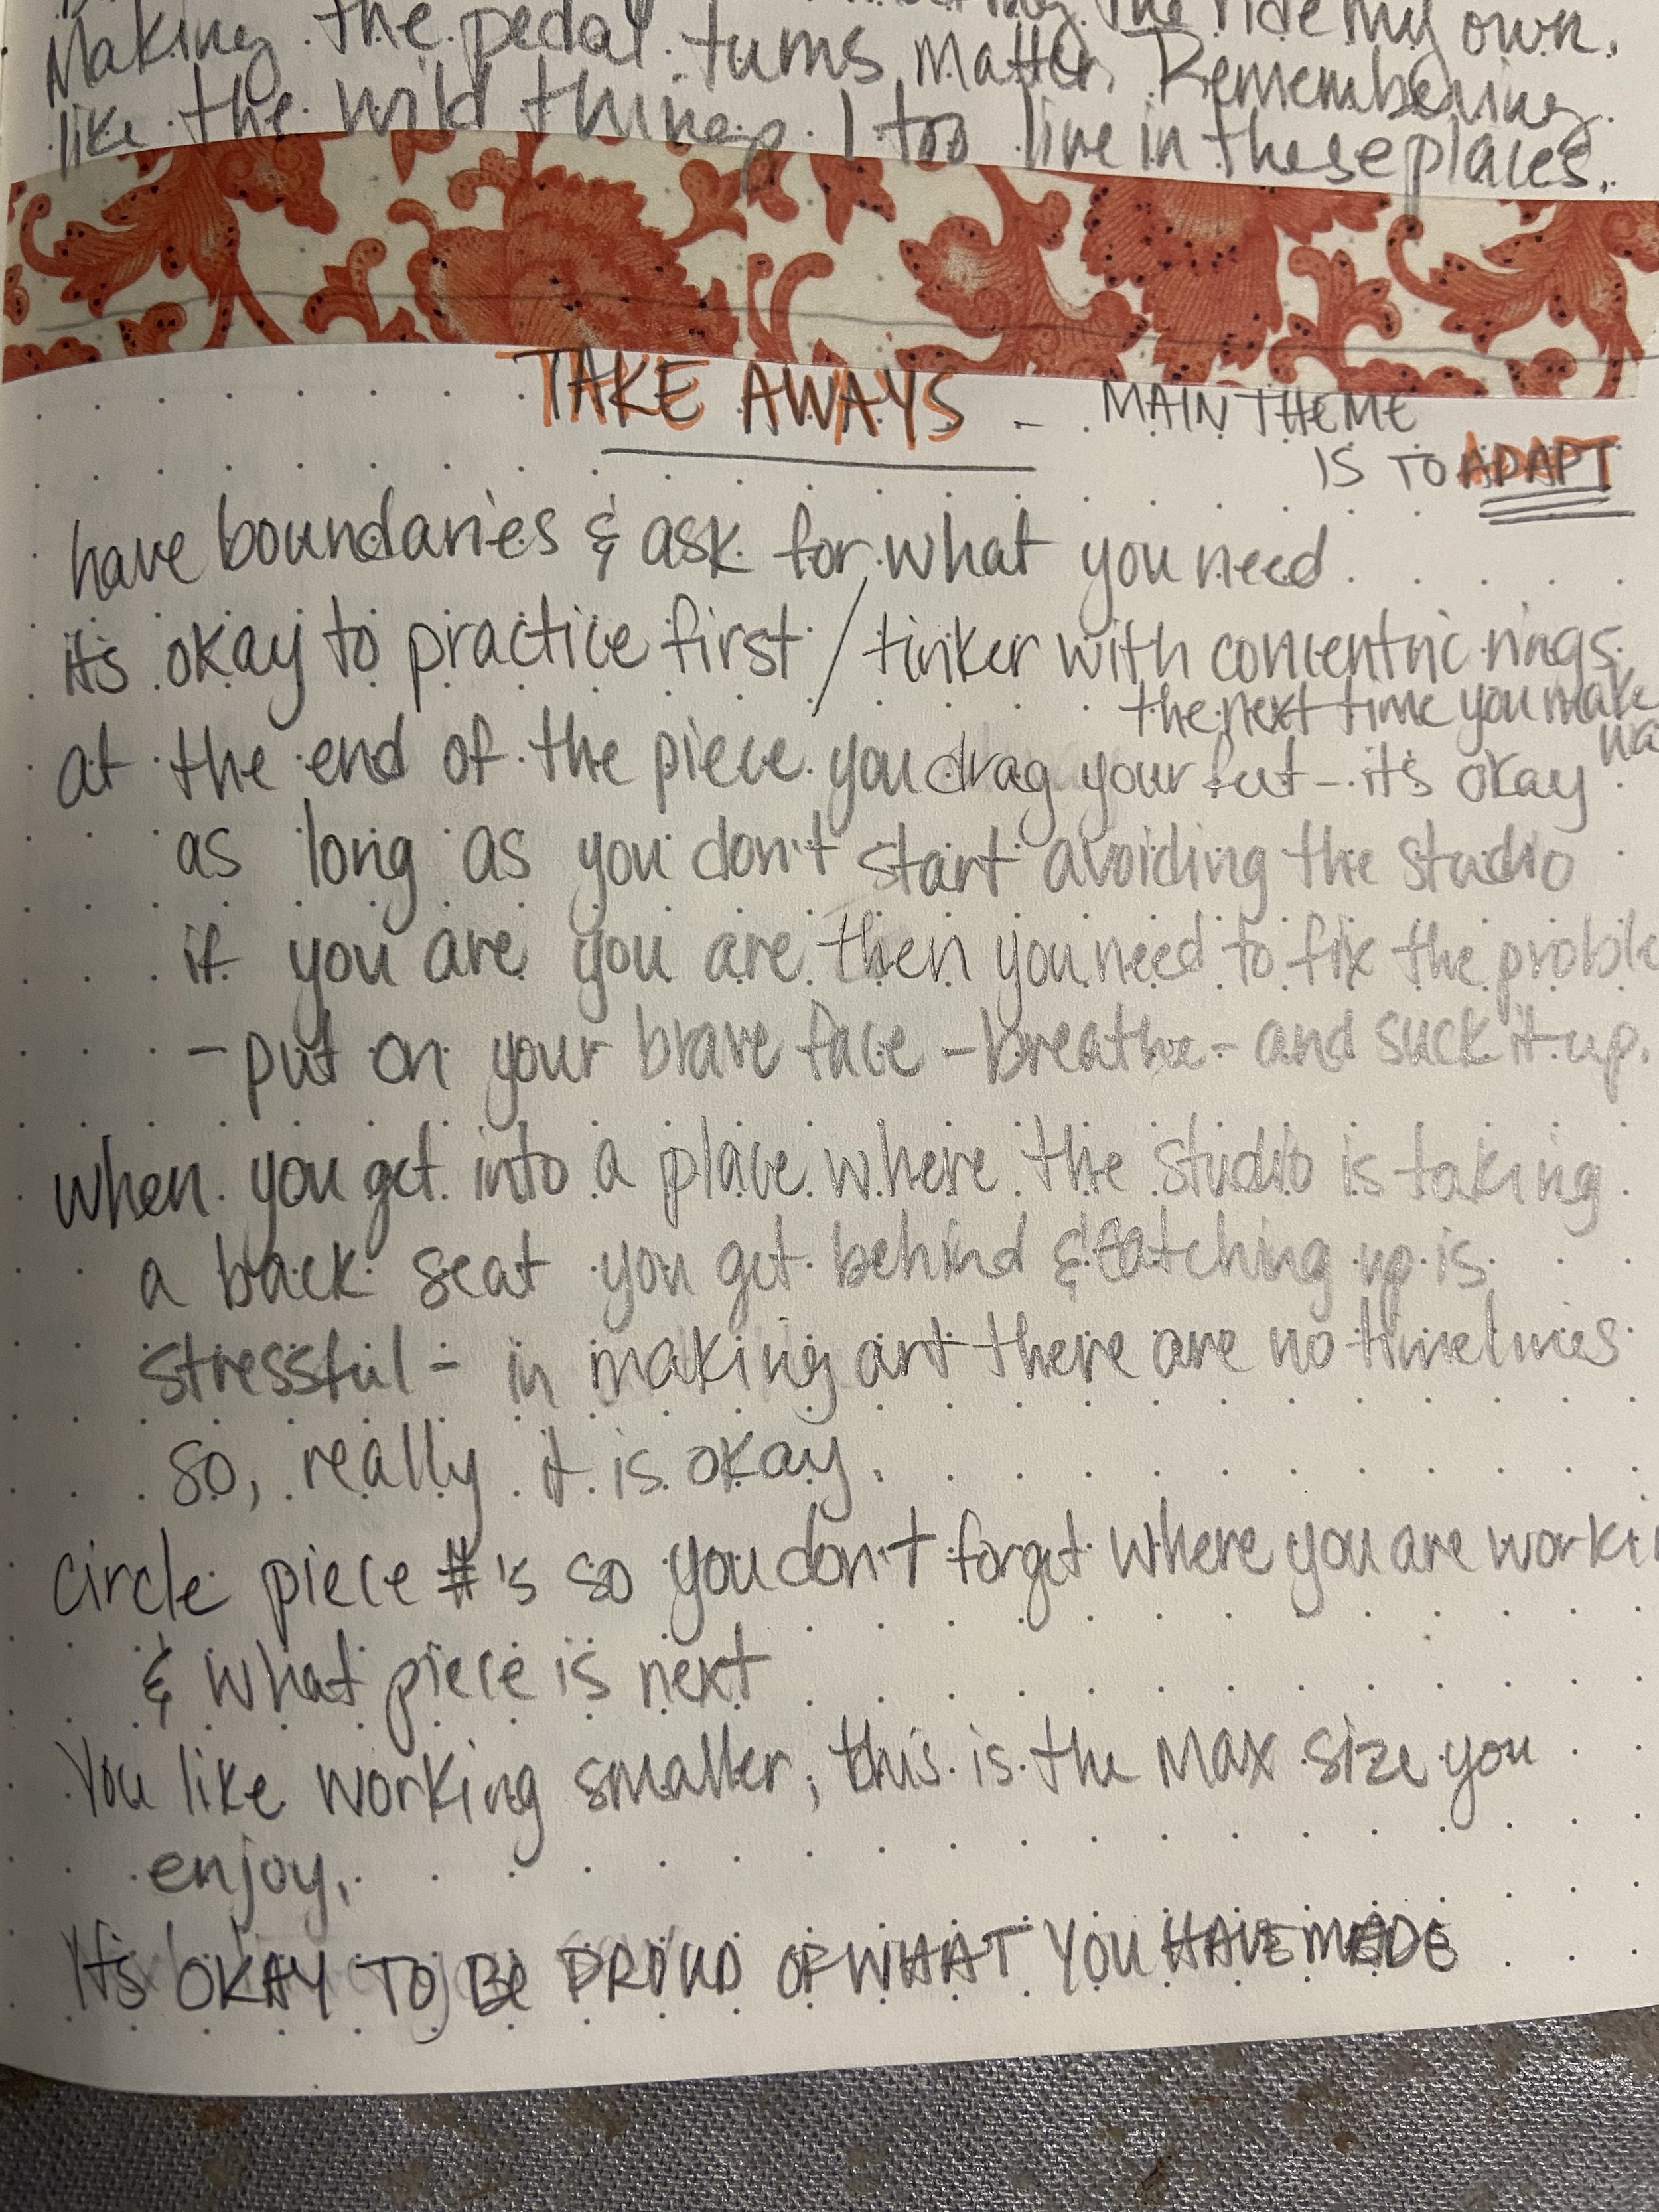 the ride my own.
Making the pedal turns matter. Remembering
like the wild things I too live in these places.
TAKE AWAYS - MAIN THEME
IS TO ADAPT
have boundaries & ask for what you need.
it's okay to practice first / tinker with concentric rings
the next time you make
at the end of the piece you drag your feet - it's okay
as long as you don't start avoiding the studio
if you are you are then you need to fix the proble
- put on your brave face - breathe - and suck it up.
when you get into a place where the studio is taking
a back seat you get behind & catching up is
stressful - in making art there are no timelines
so, really it is okay.
circle piece #'s so you don't forget where you are worki
& what piece is next
You like working smaller, this is the MAX size you
enjoy.
It's OKAY TO BE PROUD OF WHAT YOU HAVE MADE